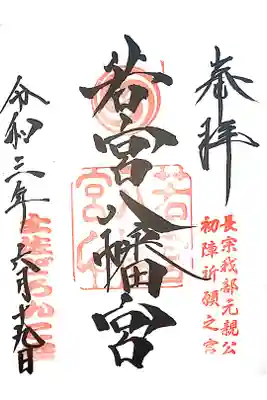 奉拝
長宗我部元親公
初陣祈願之宮
若宮八幡宮
令和三年六月十九日